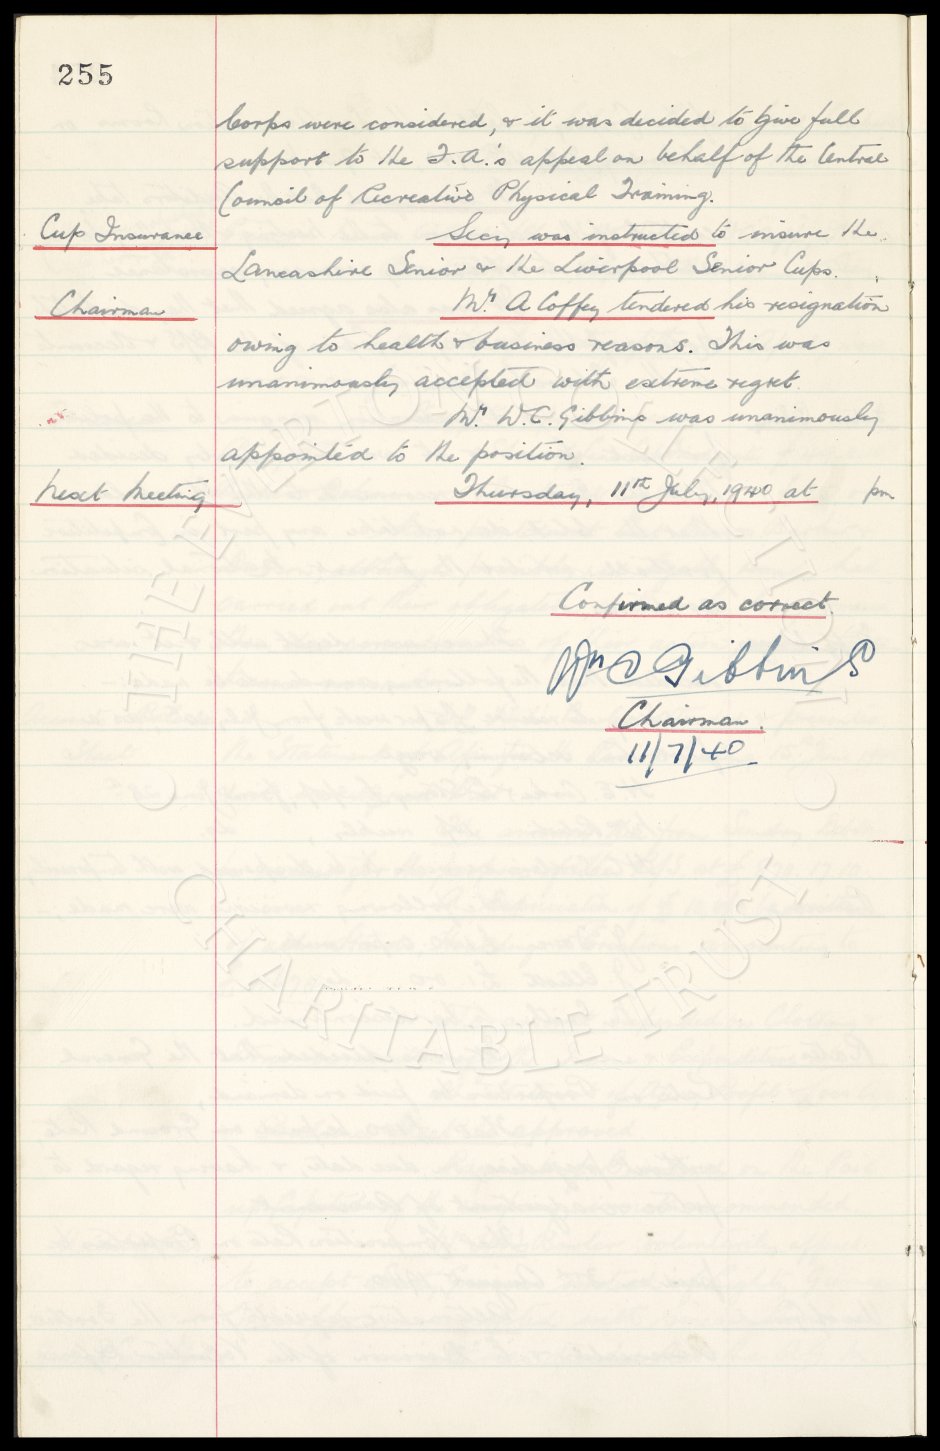 255
Corps were considered, & it was decided to give full
support to the F.A.'s appeal on behalf of the Central
Council of Recreative Physical Training.
Cup Insurance Secy was instructed to insure the
Lancashire Senior & the Liverpool Senior Cups.
Chairman Mr. A Coffey tendered his resignation
owing to health & business reasons. This was
unanimously accepted with extreme regret.
Mr. W.C. Gibbins was unanimously
appointed to the position.
Next Meeting Thursday, 11th July, 1940 at pm
Confirmed as correct.
Wm C Gibbins
Chairman.
11/7/40
THE EVERTON COLLECTION
CHARITABLE TRUST